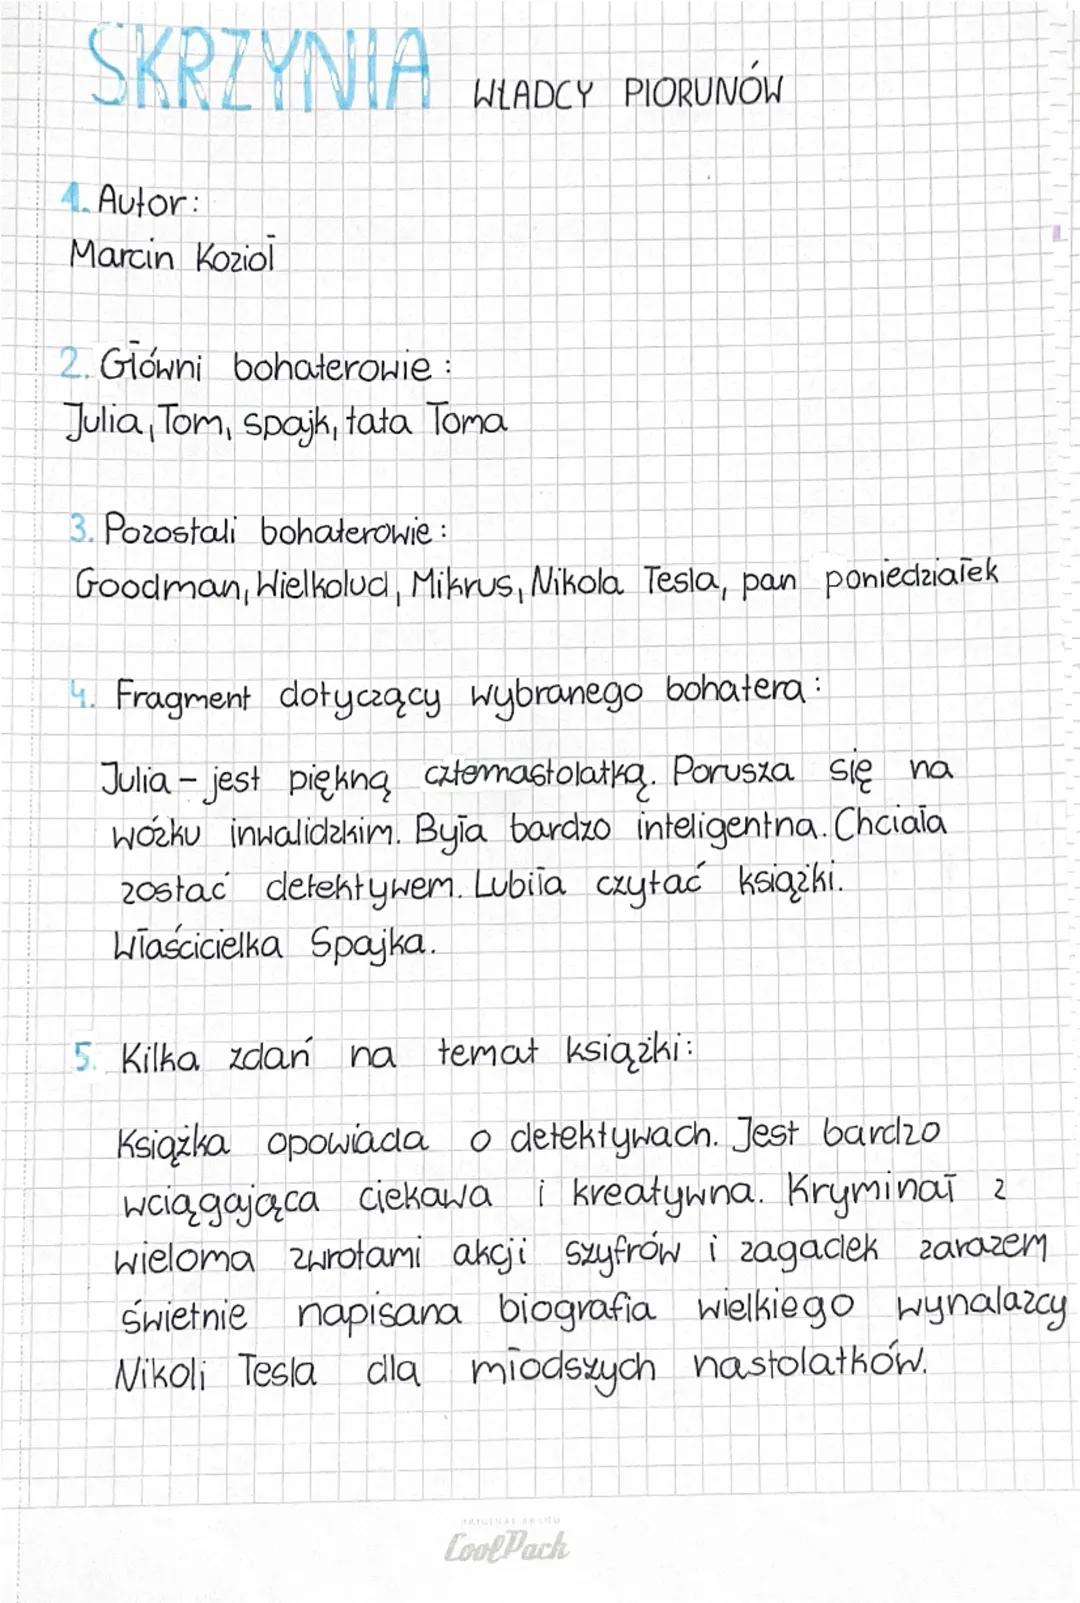 SKRZYNIA WŁADCY PIORUNÓW
1. Autor:
Marcin Kozioł
2. Główni bohaterowie:
Julia, Tom, spajk, tata Toma
3. Pozostali bohaterowie:
Goodman, Wielkolud, Mikrus, Nikola Tesla, pan poniedziałek
4. Fragment dotyczący wybranego bohatera:
Julia - jest piękną czternastolatką. Porusza się na
wózku inwalidzkim. Była bardzo inteligentna. Chciała
zostać detektywem. Lubiła czytać książki.
Właścicielka Spajka.
5. Kilka zdań na temat książki:
Książka opowiada o detektywach. Jest bardzo
wciągająca ciekawa i kreatywna. Kryminał z
wieloma zwrotami akcji szyfrów i zagadek zarazem
świetnie napisana biografia wielkiego wynalazcy
Nikoli Tesla dla młodszych nastolatków.
ORIGINAL BRAND
CoolPack